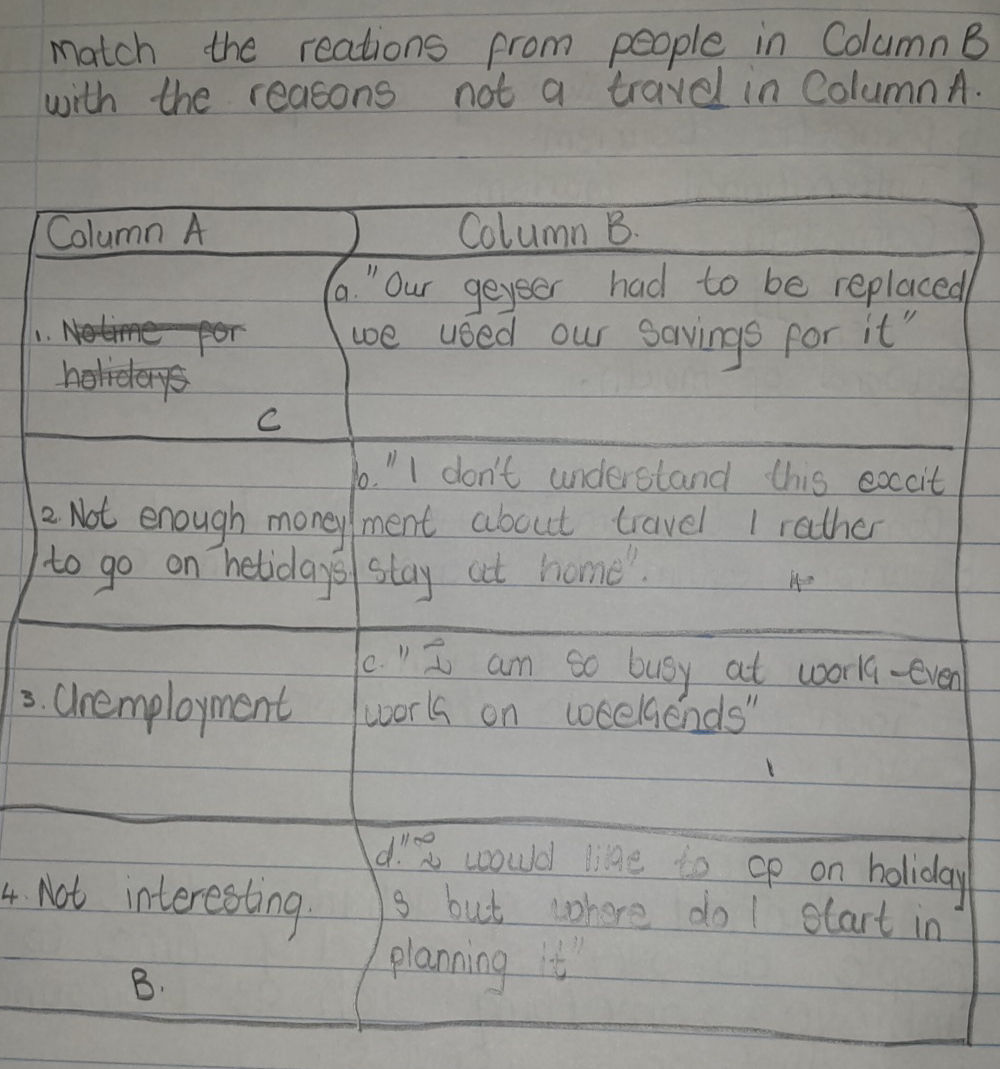 Match the reations from people in Column B
with the reasons not a travel in Column A.
Column A
Column B.
1. Notime for
holidays
C
a. "Our geyser had to be replaced
we used our savings for it"
2. Not enough money
to go on holidays
b. "I don't understand this excit
ment about travel I rather
stay at home".
4
3. Unemployment
c. "I am so busy at work - even
work on weekends"
1
4. Not interesting.
B.
d. "I would like to go on holiday
s but where do I start in
planning it"